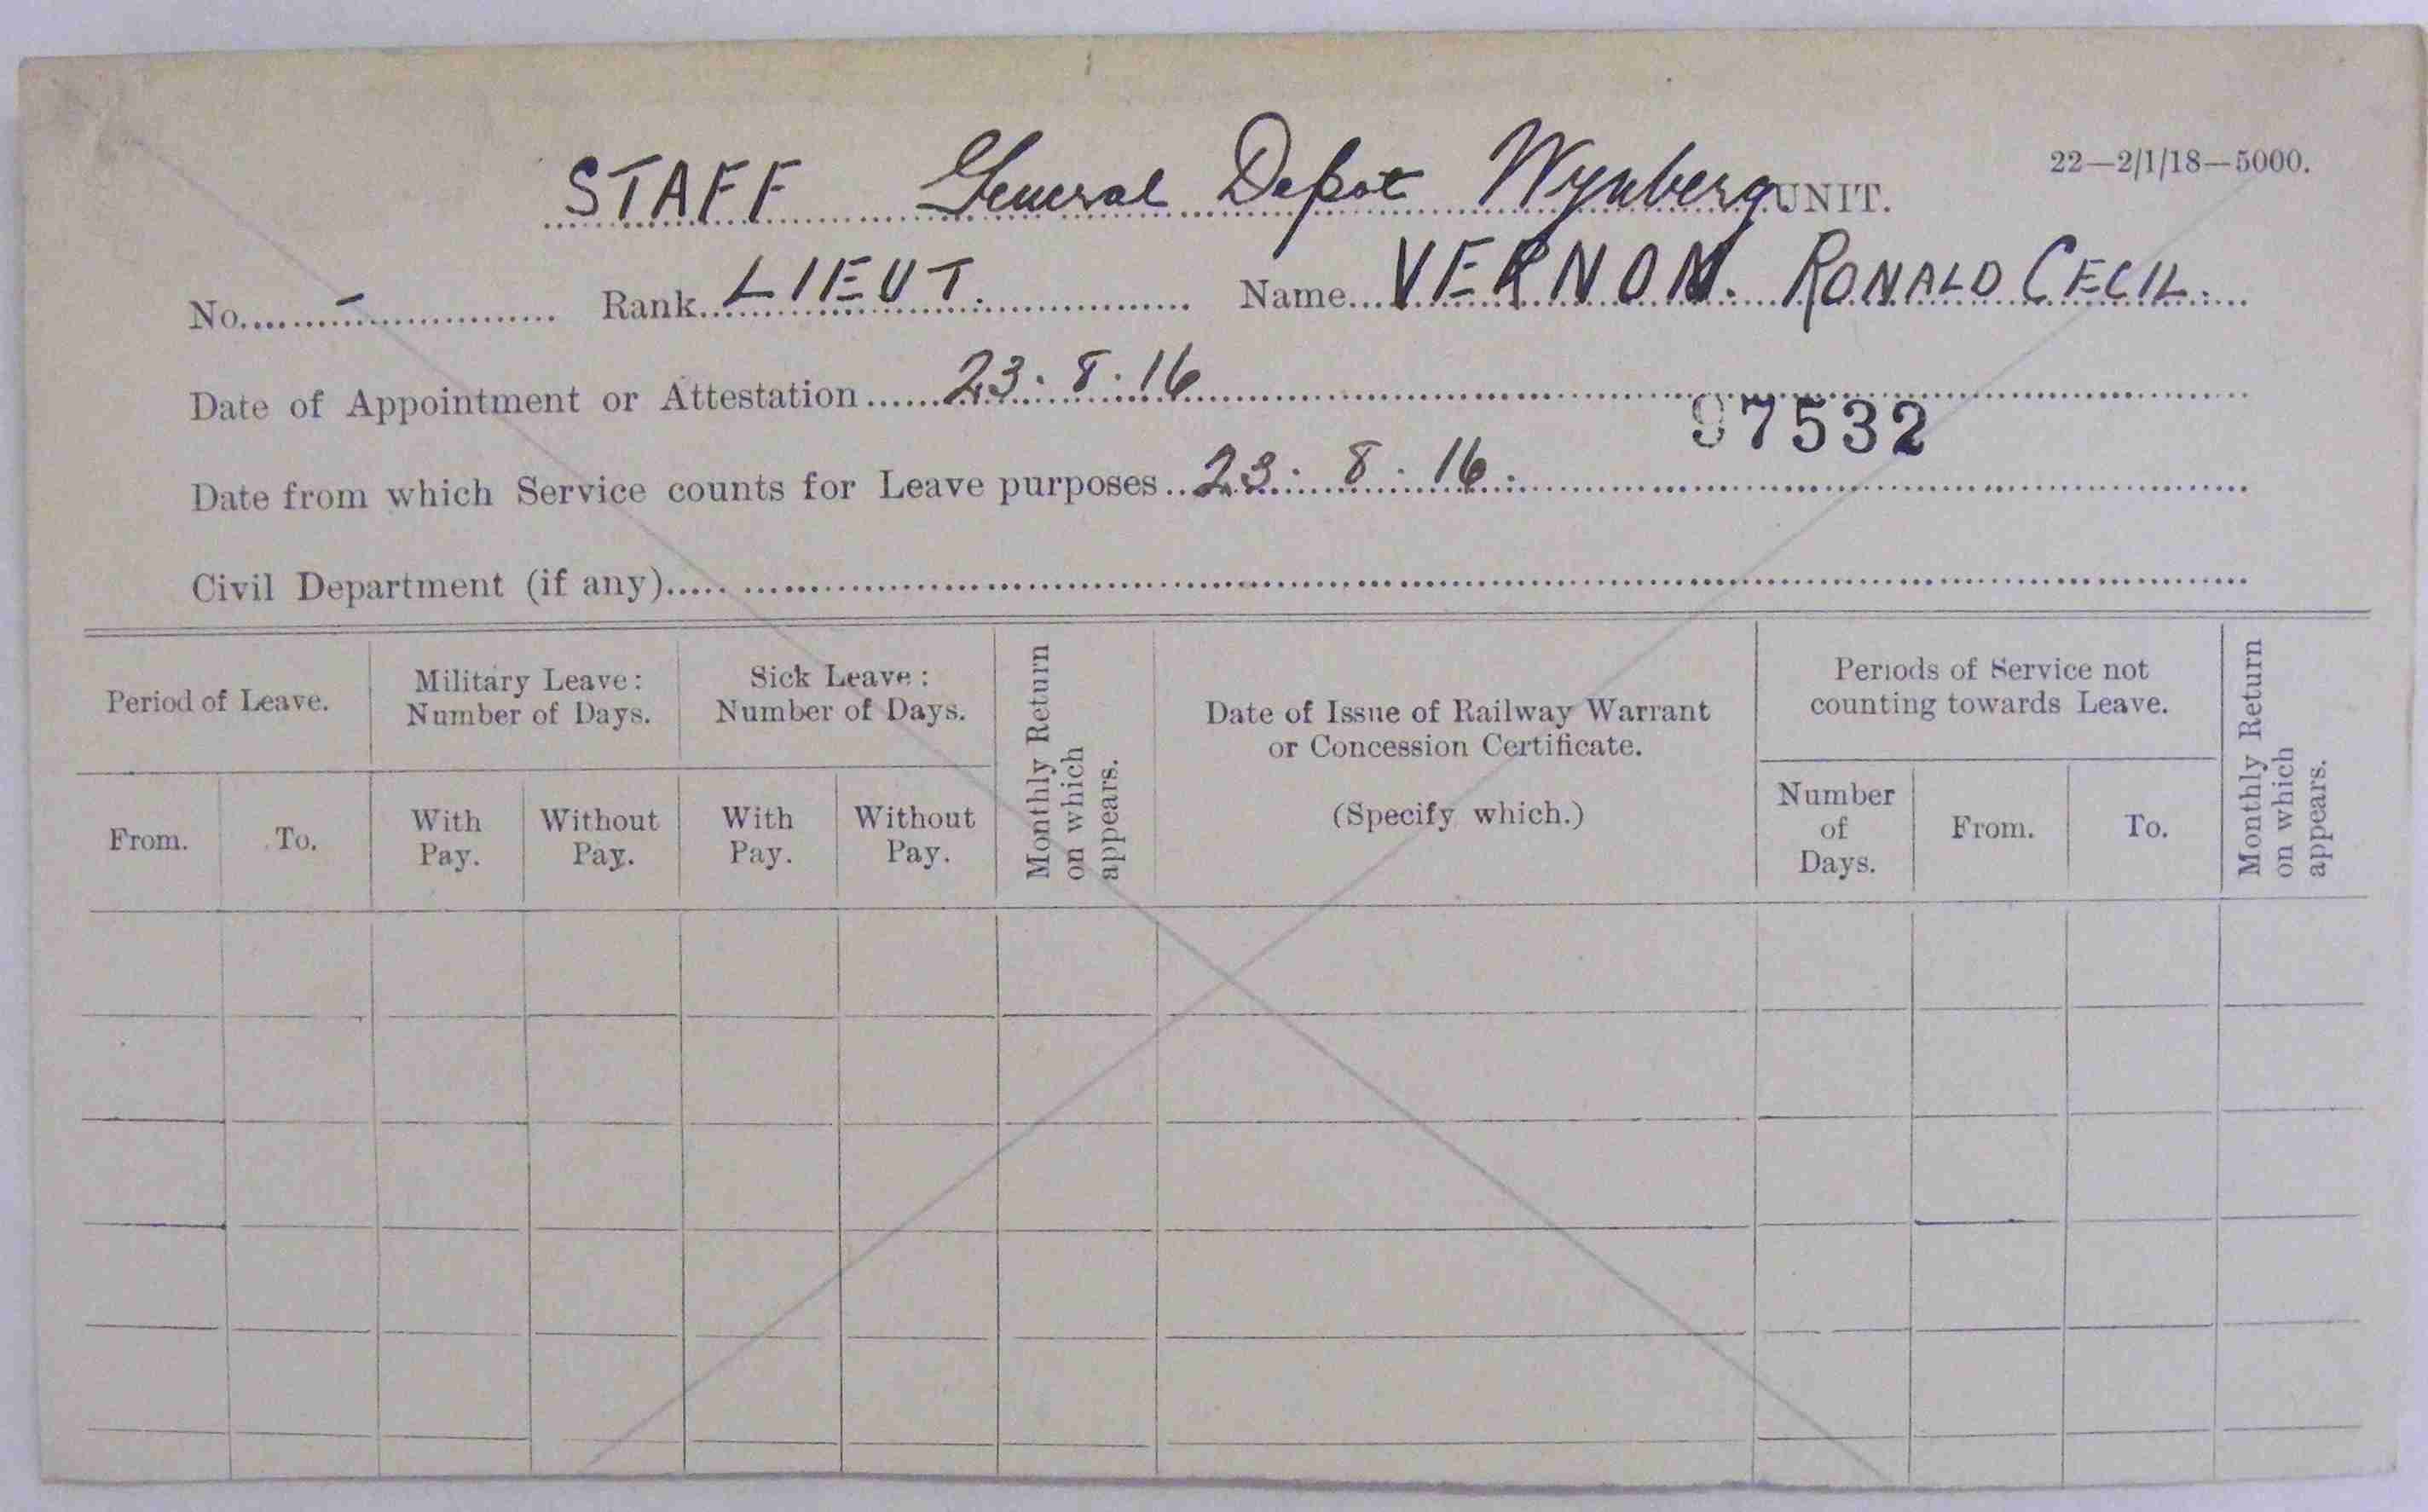 22—2/1/18—5000.
STAFF General Depot Wynberg UNIT.
No. - Rank LIEUT. Name VERNON. RONALD CECIL.
Date of Appointment or Attestation 23.8.16
97532
Date from which Service counts for Leave purposes 23.8.16.
Civil Department (if any)
Period of Leave.
From.
To.
Military Leave:
Number of Days.
With
Pay.
Without
Pay.
Sick Leave:
Number of Days.
With
Pay.
Without
Pay.
Monthly Return
on which
appears.
Date of Issue of Railway Warrant
or Concession Certificate.
(Specify which.)
Periods of Service not
counting towards Leave.
Number
of
Days.
From.
To.
Monthly Return
on which
appears.